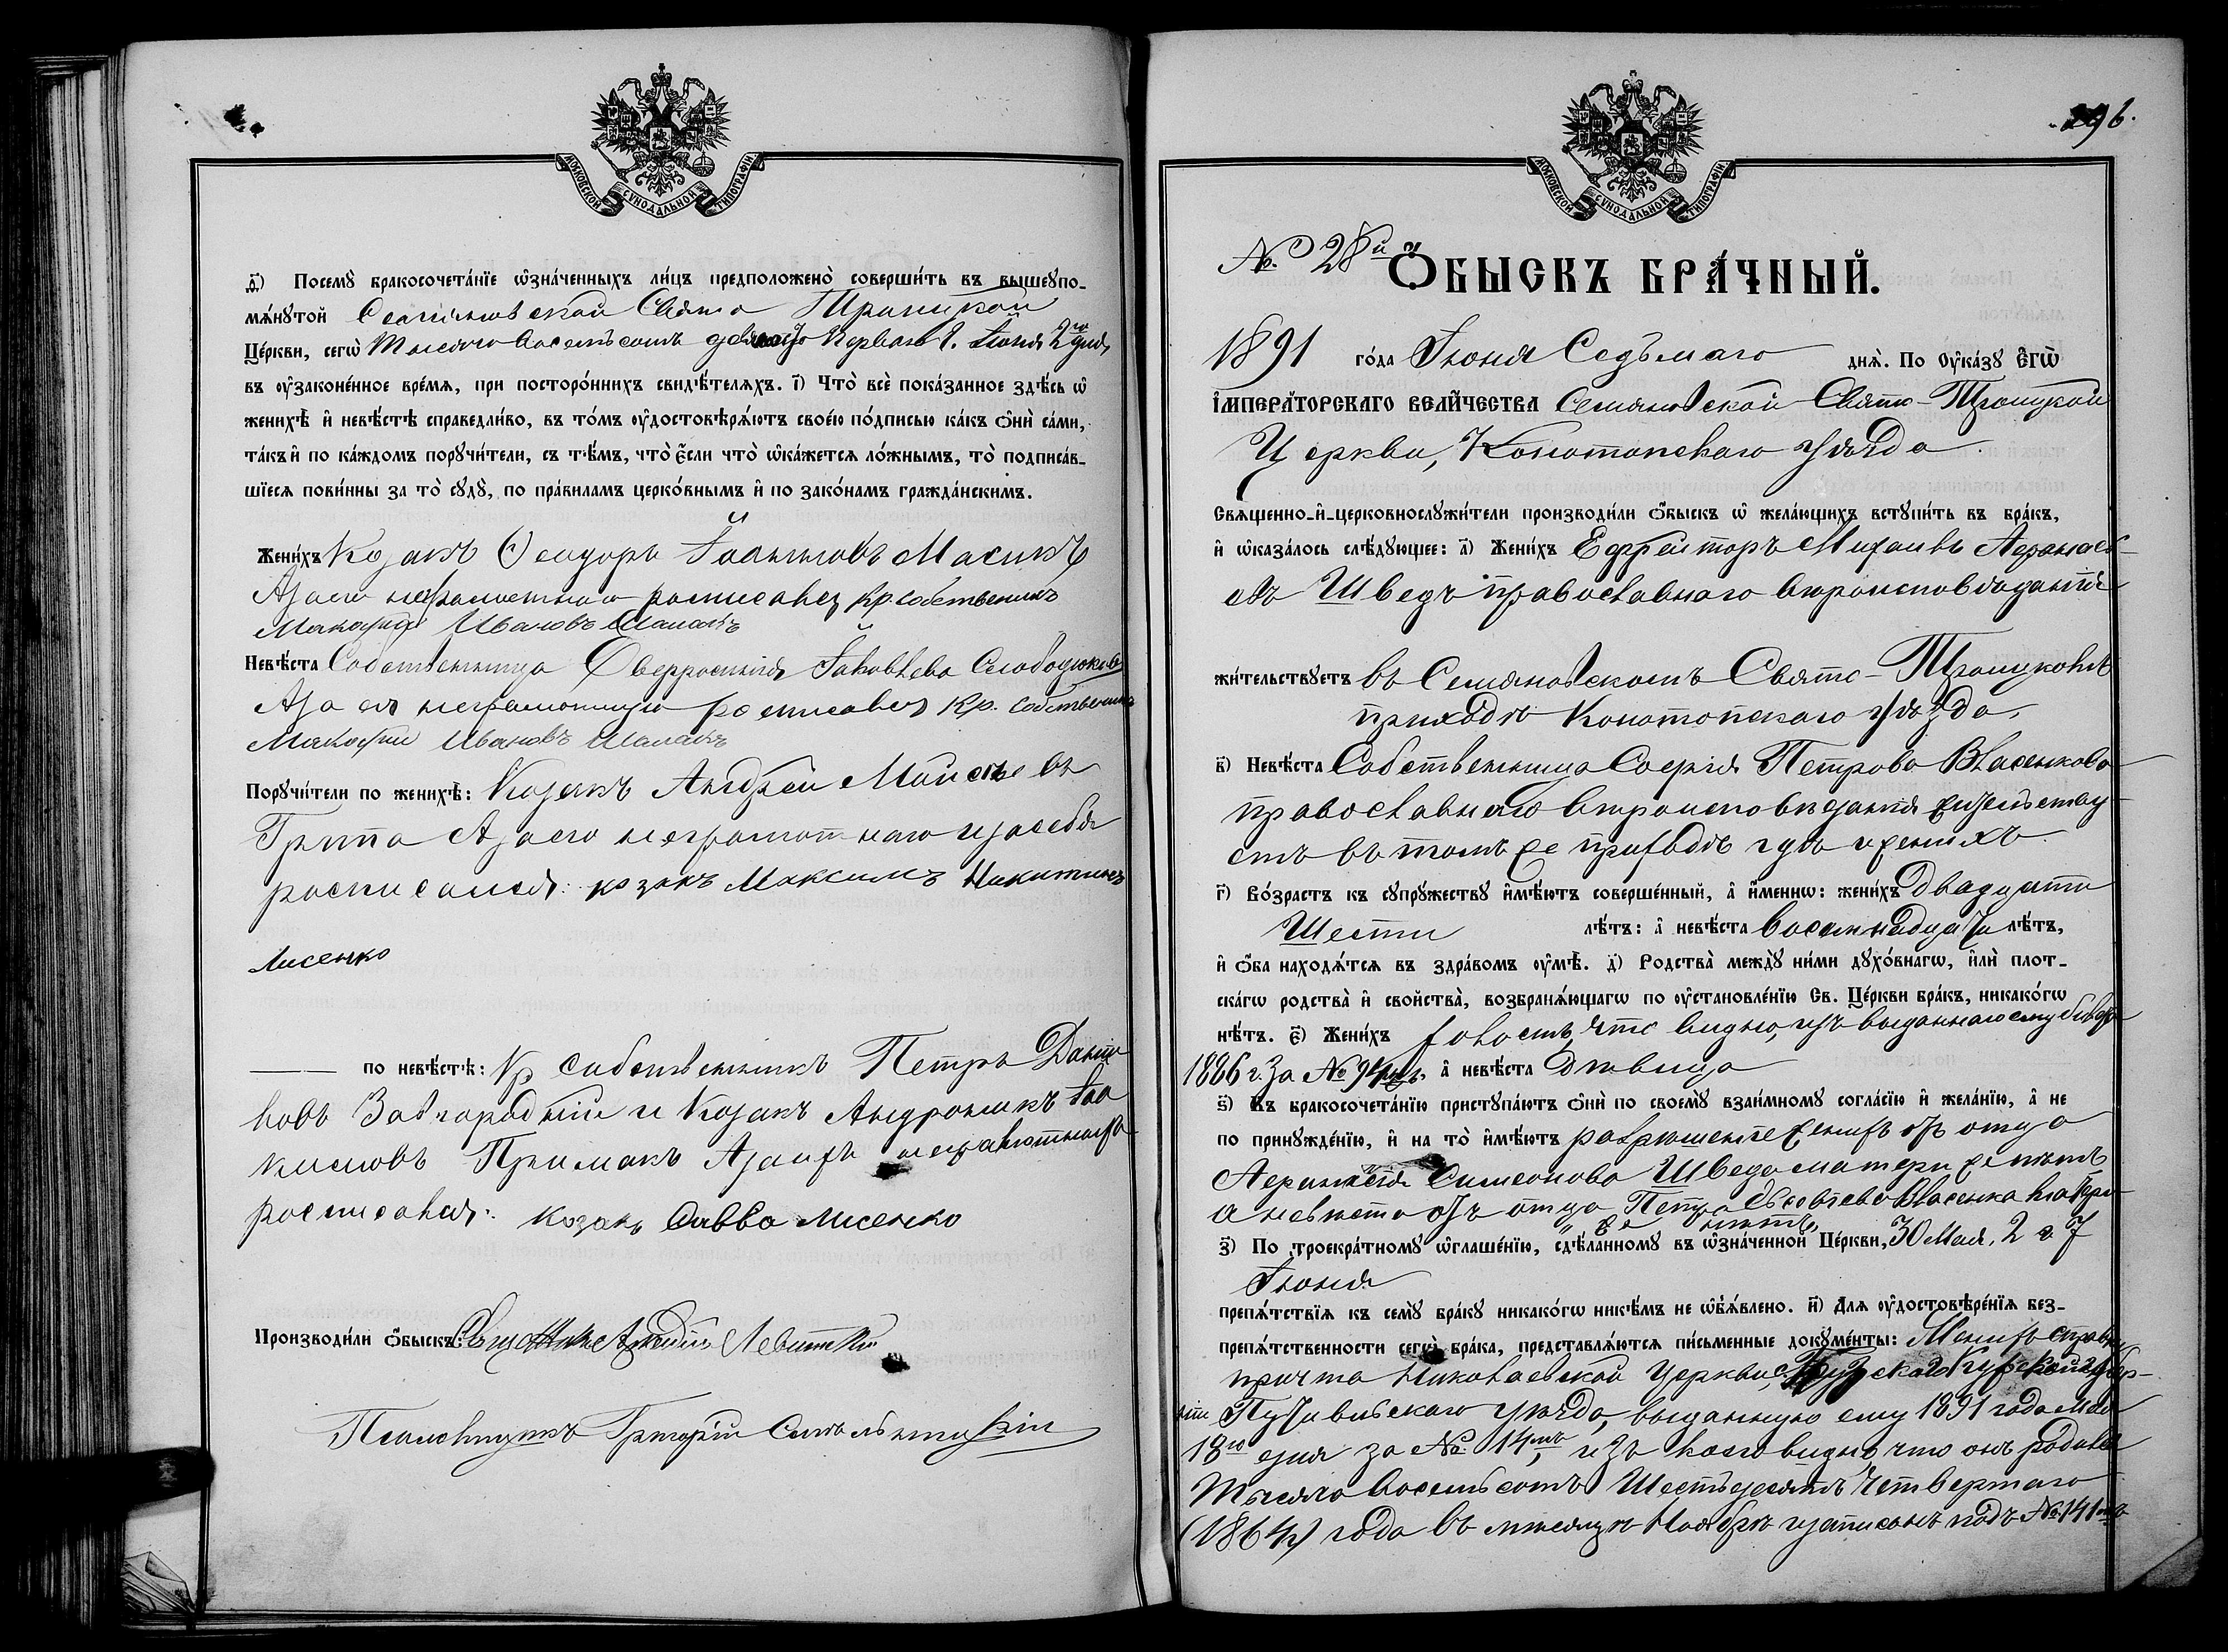 МОСКОВСКОЙ СѴНОДАЛЬНОЙ ТИПОГРАФІИ
д҃і) Посемꙋ̀ бракосочета́нїе ѡ҆зна́ченныхъ ли́цъ предположено̀ соверши́ть въ вышеꙋпо-
мѧ́нꙋтой Семяновской Свято Троицкой
Це́ркви, сегѡ̀ Тысяча восемьсотъ девяносто Перваго г. Іюня 2го дня,
въ ᲂу҆законе́нное вре́мѧ, при посторо́ннихъ свидѣ́телѧхъ. і҃) Что̀ всѐ пока́занное здѣ́сь ѡ҆
женихѣ̀ и҆ невѣ́стѣ справедли́во, въ то́мъ ᲂу҆достовѣрѧ́ютъ свое́ю по́дписью ка́къ ѻ҆нѝ са́ми,
та́къ и҆ по ка́ждомъ порꙋчи́тели, съ тѣ́мъ, что̀ є҆́сли что̀ ѡ҆ка́жетсѧ ло́жнымъ, то̀ подписа́в-
шїесѧ пови́нны за то̀ сꙋдꙋ̀, по пра́виламъ церко́внымъ и҆ по зако́намъ гражда́нскимъ.
Жени́хъ Козакъ Ѳеодоръ Масикъ
А за его неграмотнаго росписався кр. собственникъ
Макарій Ивановъ Шамакъ
Невѣ́ста Собственница Евфросинія Іаковлева Слободюкова
А за ея неграмотную росписався Кр. собственникъ
Макарій Ивановъ Шамакъ
Порꙋчи́тели по женихѣ̀: Козакъ Андрей Моисеевъ
Грита А за его неграмотнаго и за себя
росписался: козакъ Максимъ Никитинъ
Лисенко
по невѣ́стѣ: Кр собственникъ Петръ Дани
ловъ Завгородній и Козакъ Андроникъ Іоа
кимовъ Примакъ А за ихъ неграмотныхъ
росписался: козакъ Савва Лисенко
Производи́ли ѻ҆́быскъ: Священникъ Левитскій
Псаломщикъ Григорій
МОСКОВСКОЙ СѴНОДАЛЬНОЙ ТИПОГРАФІИ
296.
№ 28й Ѻ҆́БЫСКЪ БРА́ЧНЫЙ.
1891 го́да Іюня Седьмаго днѧ̀. По ᲂу҆ка́зꙋ є҆гѡ̀
і҆мпера́торскаго вели́чества Семяновской Свято-Троицкой
Церкви, Конотопскаго уѣзда
Свѧще́нно-и҆-церковнослꙋжи́тели производи́ли ѻ҆́быскъ ѡ҆ жела́ющихъ встꙋпи́ть въ бра́къ,
и҆ ѡ҆каза́лось слѣ́дꙋющее: а҃) Жени́хъ Ефрейторъ Михаилъ Аѳанась-
евъ Шведъ православнаго вѣроисповѣданія
жи́тельствꙋетъ въ Семяновскомъ Свято-Троицкомъ
приходѣ Конотопскаго уѣзда,
в҃) Невѣ́ста Собственница Софія Петрова Власенкова
православнаго вѣроисповѣданія жительству-
етъ въ томъ же приходѣ гдѣ и женихъ.
г҃) Во́зрастъ къ сꙋпрꙋ́жествꙋ и҆мѣ́ютъ соверше́нный, а҆ и҆́меннѡ: жени́хъ Двадцати
Шести лѣ́тъ: а҆ невѣ́ста восемнадцати лѣ́тъ,
и҆ ѻ҆́ба нахо́дѧтсѧ въ здра́вомъ ᲂу҆мѣ̀. д҃) Родства̀ междꙋ̀ ни́ми дꙋхо́внагѡ, и҆лѝ плот-
ска́гѡ родства̀ и҆ сво́йства̀, возбранѧ́ющагѡ по ᲂу҆становле́нїю Св. Це́ркви бра́къ, никако́гѡ
нѣ́тъ. є҃) Жени́хъ холостъ, что видно, изъ выданнаго ему
1886 г. за № 94мъ, а҆ невѣ́ста Дѣвица
ѕ҃) Къ бракосочета́нїю пристꙋпа́ютъ ѻ҆нѝ по своемꙋ̀ взаи́мномꙋ согла́сїю и҆ жела́нїю, а҆ не
по принꙋжде́нїю, и҆ на то̀ и҆мѣ́ютъ разрѣшеніе женихъ отъ отца
Аѳанасія Симеонова Шведа матери же нѣтъ
а невѣста отъ отца Петра Власенка
з҃) По троекра́тномꙋ ѡ҆глаше́нїю, сдѣ́ланномꙋ въ ѡ҆зна́ченной Це́ркви, 30 Мая, 2 и 7
Іюня
препѧ́тствїѧ къ семꙋ̀ бра́кꙋ никако́гѡ никѣ́мъ не ѡ҆б̾ѧ́влено. и҃) Для ᲂу҆достовѣре́нїѧ без-
препѧ́тственности сегѡ̀ бра́ка, представлѧ́ютсѧ пи́сьменные докꙋме́нты:
причта Николаевской Церкви, Курской губер-
ніи Путивльскаго уѣзда, выданную ему 1891 года Мая
18го дня за № 14мъ, изъ коего видно, что онъ родился
Тысяча восемьсотъ Шестьдесятъ Четвертаго
(1864) года въ мѣсяцѣ Ноябрѣ и записанъ подъ № 141мъ